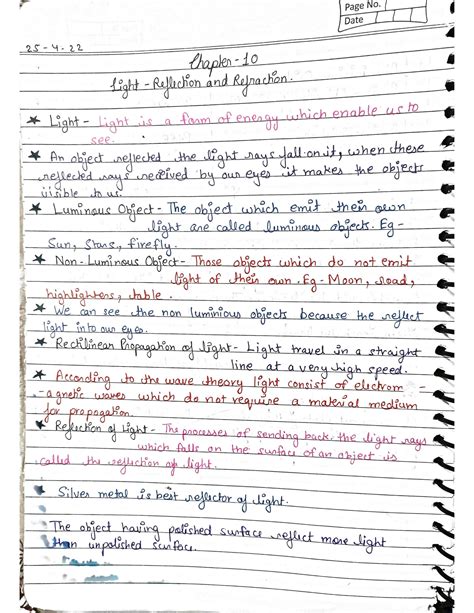 Page No.
Date
25-4-22
Chapter-10
Light - Reflection and Refraction.
★ Light - Light is a form of energy which enable us to
see.
★ An object reflected the light rays fall on it, when these
reflected rays received by our eyes it makes the objects
visible to us.
★ Luminous Object - The object which emit their own
light are called luminous objects. Eg-
Sun, Stars, firefly.
★ Non-Luminous Object - Those objects which do not emit
light of their own. Eg - Moon, road,
highlighters, table.
★ We can see the non luminious objects because the reflect
light into our eyes.
★ Rectilinear Propagation of light - Light travel in a straight
line at a very high speed.
★ According to the wave theory light consist of electrom-
agnetic waves which do not require a material medium
for propagation.
★ Reflection of Light - The processes of sending back the light rays
which falls on the surface of an object is
called the reflection of light.
★ Silver metal is best reflector of light.
The object having polished surface reflect more light
than unpolished surface.